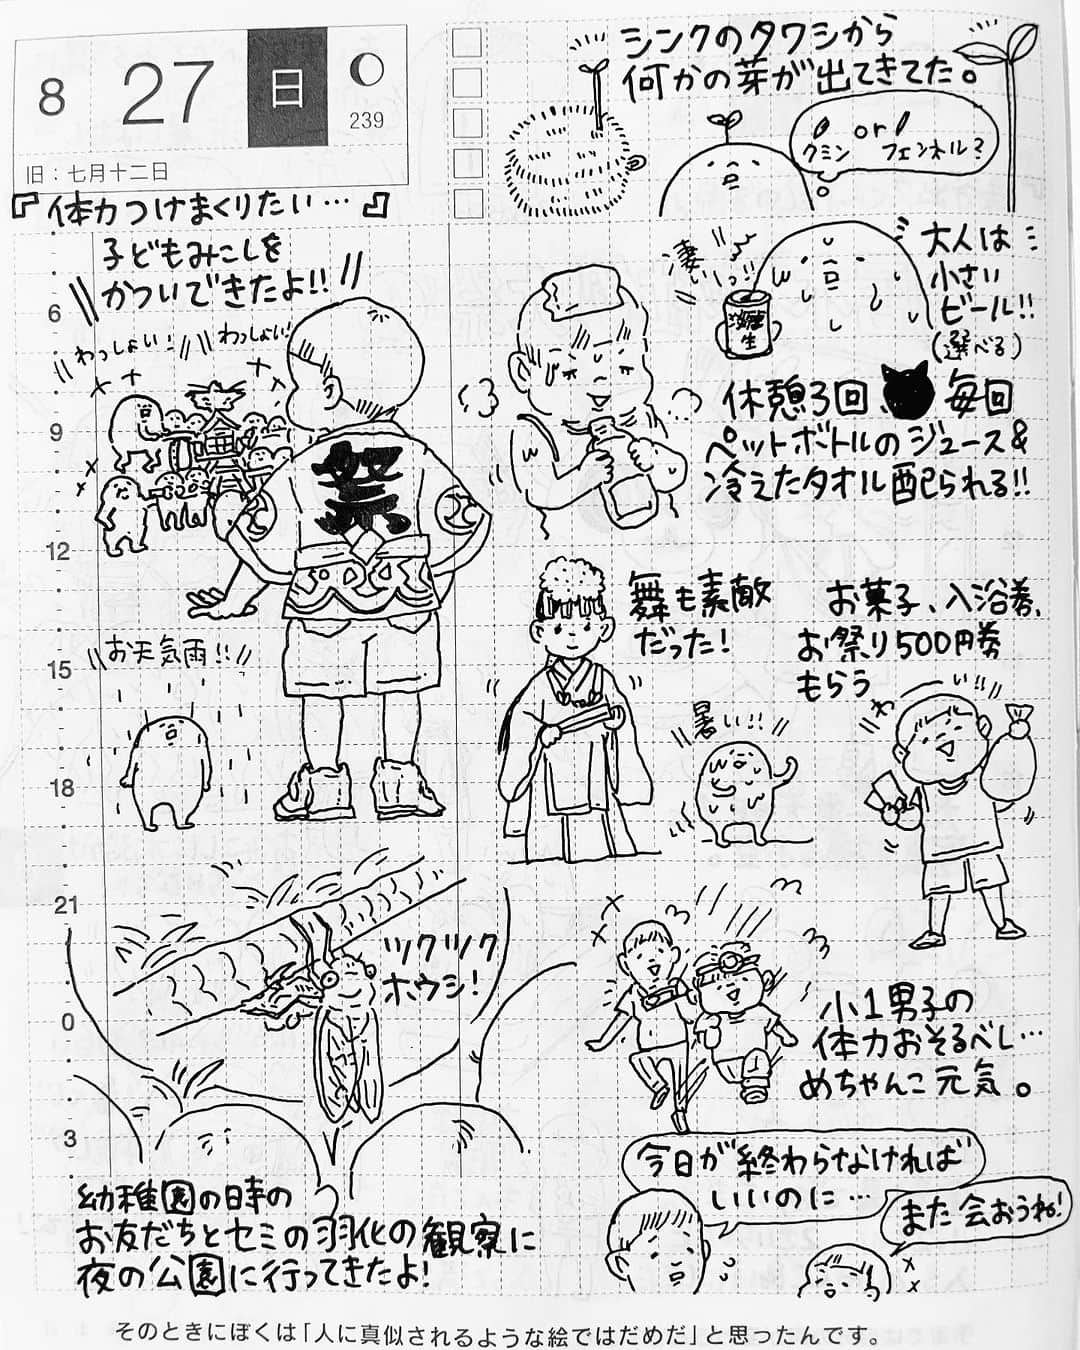 8 27 日
239
旧：七月十二日
シンクのタワシから
何かの芽が出てきてた。
or
クミン フェンネル?
『体力つけまくりたい…』
子どもみこしを
かついできたよ!!
わっしょい! わっしょい!
祭
凄いっ!!
生
大人は
小さい
ビール!!
(選べる)
休憩3回、毎回
ペットボトルのジュース&
冷えたタオル配られる!!
舞も素敵
だった!
お菓子、入浴券、
お祭り500円券
もらう
わーい!!
暑い!!
お天気雨!!
6
9
12
15
18
21
0
3
ツクツク
ホウシ!
小1男子の
体力おそるべし…
めちゃんこ元気。
今日が終わらなければ
いいのに…
また会おうね!
幼稚園の時の
お友だちとセミの羽化の観察に
夜の公園に行ってきたよ!
そのときにぼくは「人に真似されるような絵ではだめだ」と思ったんです。